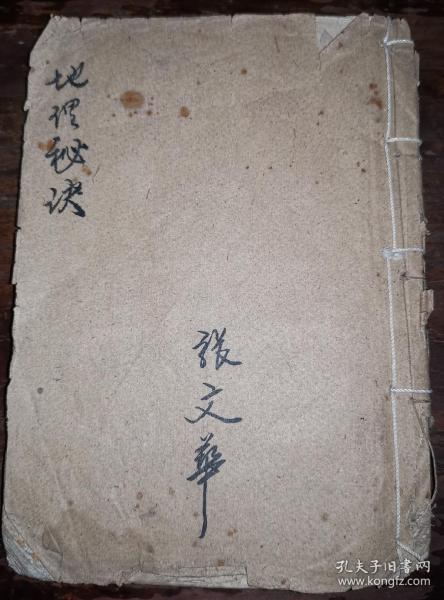 地理秘诀
張文華
孔夫子旧书网
www.kongfz.com